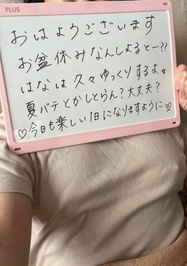 PLUS
おはようございます
お盆休みなんしよると〜??
はなは久々ゆっくりするよ〃
夏バテとかしとらん?大丈夫?
♡今日も楽しい1日になりますように♡